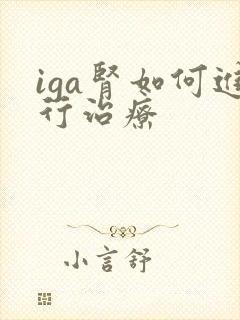 iga肾如何进
行治疗
小言舒